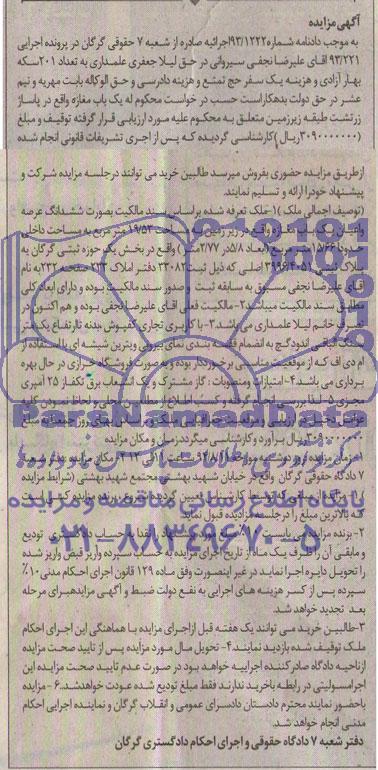 آگهی مزایده
به موجب دادنامه شماره ۹۳/۱۲۲۲اجرائیه صادره از شعبه ۷ حقوقی گرگان در پرونده اجرایی
۹۳/۲۲۱ اقای علیرضا نجفی سیروانی در حق لیلا جعفری علمداری به تعداد ۲۰۱سکه
بهار آزادی و هزینه یک سفر حج تمتع و هزینه دادرسی و حق الوکاله بابت مهریه و نیم
عشر در حق دولت بدهکاراست حسب در خواست محکوم له یک باب مغازه واقع در پاساژ
زرتشت طبقه زیرزمین متعلق به محکوم علیه مورد ارزیابی قرار گرفته توقیف و مبلغ
(۳۰۹۰۰۰۰۰۰۰ریال)کارشناسی گردیده که پس از اجری تشریفات قانونی انجام شده
ازطریق مزایده حضوری بفروش میرسد طالبین خرید می توانند درجلسه مزایده شرکت و
پیشنهاد خودرا ارائه و تسلیم نمایند.
(توصیف اجمالی ملک )۱-ملک تعرفه شده براساس سند مالکیت بصورت ششدانگ عرصه
واعیان یک باب مغازه واقع در زیر زمین به مساحت ۱۹/۵۳ متر مربع به مساحت داخلی
حدودا ۱۵/۶۶ متر مربع واقع در بخش یک حوزه ثبتی گرگان به
پلاک ثبتی اصلی که ذیل ثبت ۳۳۰۸۲ دفتر املاک ۲۳۳ صفحه ۲۳۲به نام
اقای علیرضا نجفی مسبوق به سابقه ثبت و صدور سند مالکیت بوده و دارای ابعاد کلی
مطابق سند مالکیت میباشد۲-مالکیت فعلی اقای علیرضا نجفی بوده و هم اکنون در
تصرف خانم لیلا علمداری می باشد.۳-با کاربری تجاری کفپوش بدنه تا ارتفاع یک متر
سنگ الباقی اندودگچ به انضمام قفسه بندی نمای بیرونی ویترین شیشه ای با استفاده از
ام دی اف که از موقعیت مناسبی برخورداربوده و به صورت فروشگاه خرازی در حال بهره
برداری می باشد.۴-امتیازات ومنصوبات : گاز مشترک و یک انشعاب برق تکفاز ۲۵ آمپری
مجزی ۵-لذا بررسی انجام گرفته و کسب اطلاع از محلی و لحاظ نمودن کلیه
عوامل دخیل در ارزیابی و موقعیت جغرافیایی ملک و براساس بهای روز جمعا به مبلغ
۳۰۹۰۰۰۰۰۰۰ریال براورد وکارشناسی میگرددزمان و مکان مزایده
۱-زمان مزایده روز دوشنبه مورخ ساعت ۱۱الی ۱۲ ۲-مکان مزایده دفتر شعبه
۷ دادگاه حقوقی گرگان واقع در خیابان شهید بهشتی مجتمع شهید بهشتی (شرایط مزایده
۱-مزایده از مبلغی که توسط کارشناس تعیین گردیده شروع وبرنده مزایده کسی است
که بالاترین مبلغ را درجلسه مزایده قبول نماید.
۲-برنده مزایده می بایست ۱۰٪ مبلغ را نقدا به حساب دادگستری تودیع
و مابقی آن را ظرف یک ماه از تاریخ اجرای مزایده به حساب سپرده واریز قبض واریز شده
را تحویل دایره اجرا نماید در غیر اینصورت وفق ماده ۱۲۹ قانون اجرای احکام مدنی ۱۰٪
سپرده پس از کسر هزینه های اجرایی به نفع دولت ضبط و آگهی مزایدهبرای مرحله
بعد تجدید خواهد شد.
۳-طالبین خرید می توانند یک هفته قبل ازاجرای مزایده با هماهنگی این اجرای احکام
ملک توقیف شده بازدید نمایند۴- تحویل مال مورد مزایده پس از تایید صحت مزایده
ازناحیه دادگاه صادرکننده اجراییه خواهد بود در صورت عدم تایید صحت مزایده این
اجرامسولیتی در رابطه باخرید ندارند فقط مبلغ تودیع شده عودت خواهدشد.۶-مزایده
باحضور نماینده محترم دادستان دادسرای عمومی و انقلاب گرگان و نماینده اجرایی احکام
مدنی انجام خواهد شد.
دفتر شعبه ۷ دادگاه حقوقی و اجرای احکام دادگستری گرگان
ParsNamadData
پایگاه اطلاع رسانی مناقصه و مزایده
۰۲۱-۸۸۳۴۹۶۷۰-۵